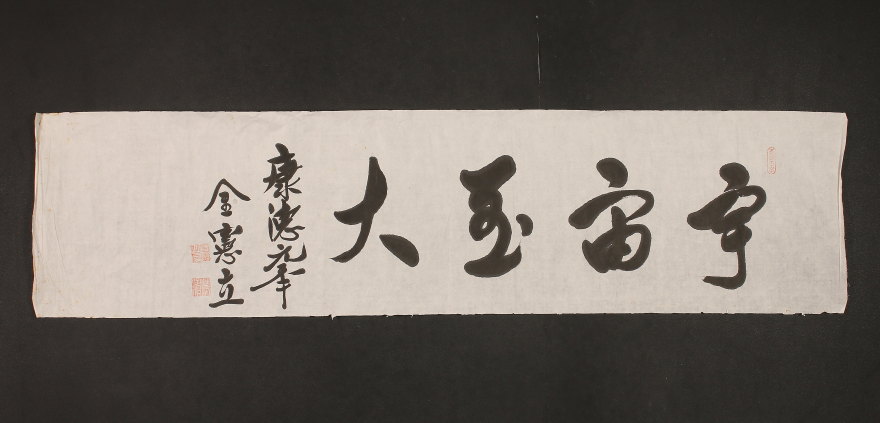 宇宙至大
康德元年
金憲立